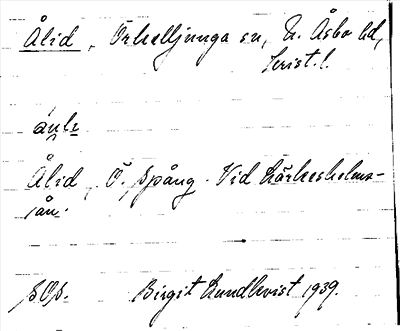 Ålid, Örkelljunga sn, N. Åsbo hd,
Krist. l.
Ålid, Ö. Spång. Vid Lärkesholms-
ån.
SOS. Birgit Lundkvist 1939.